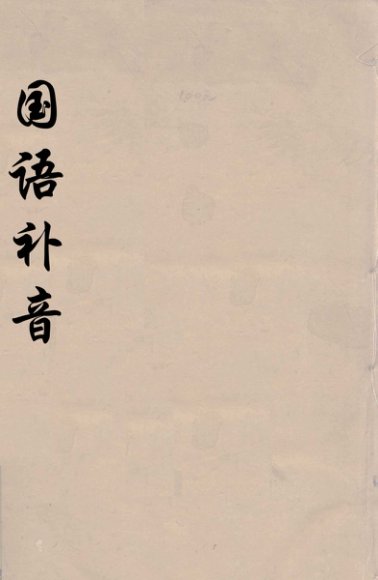 国语补音